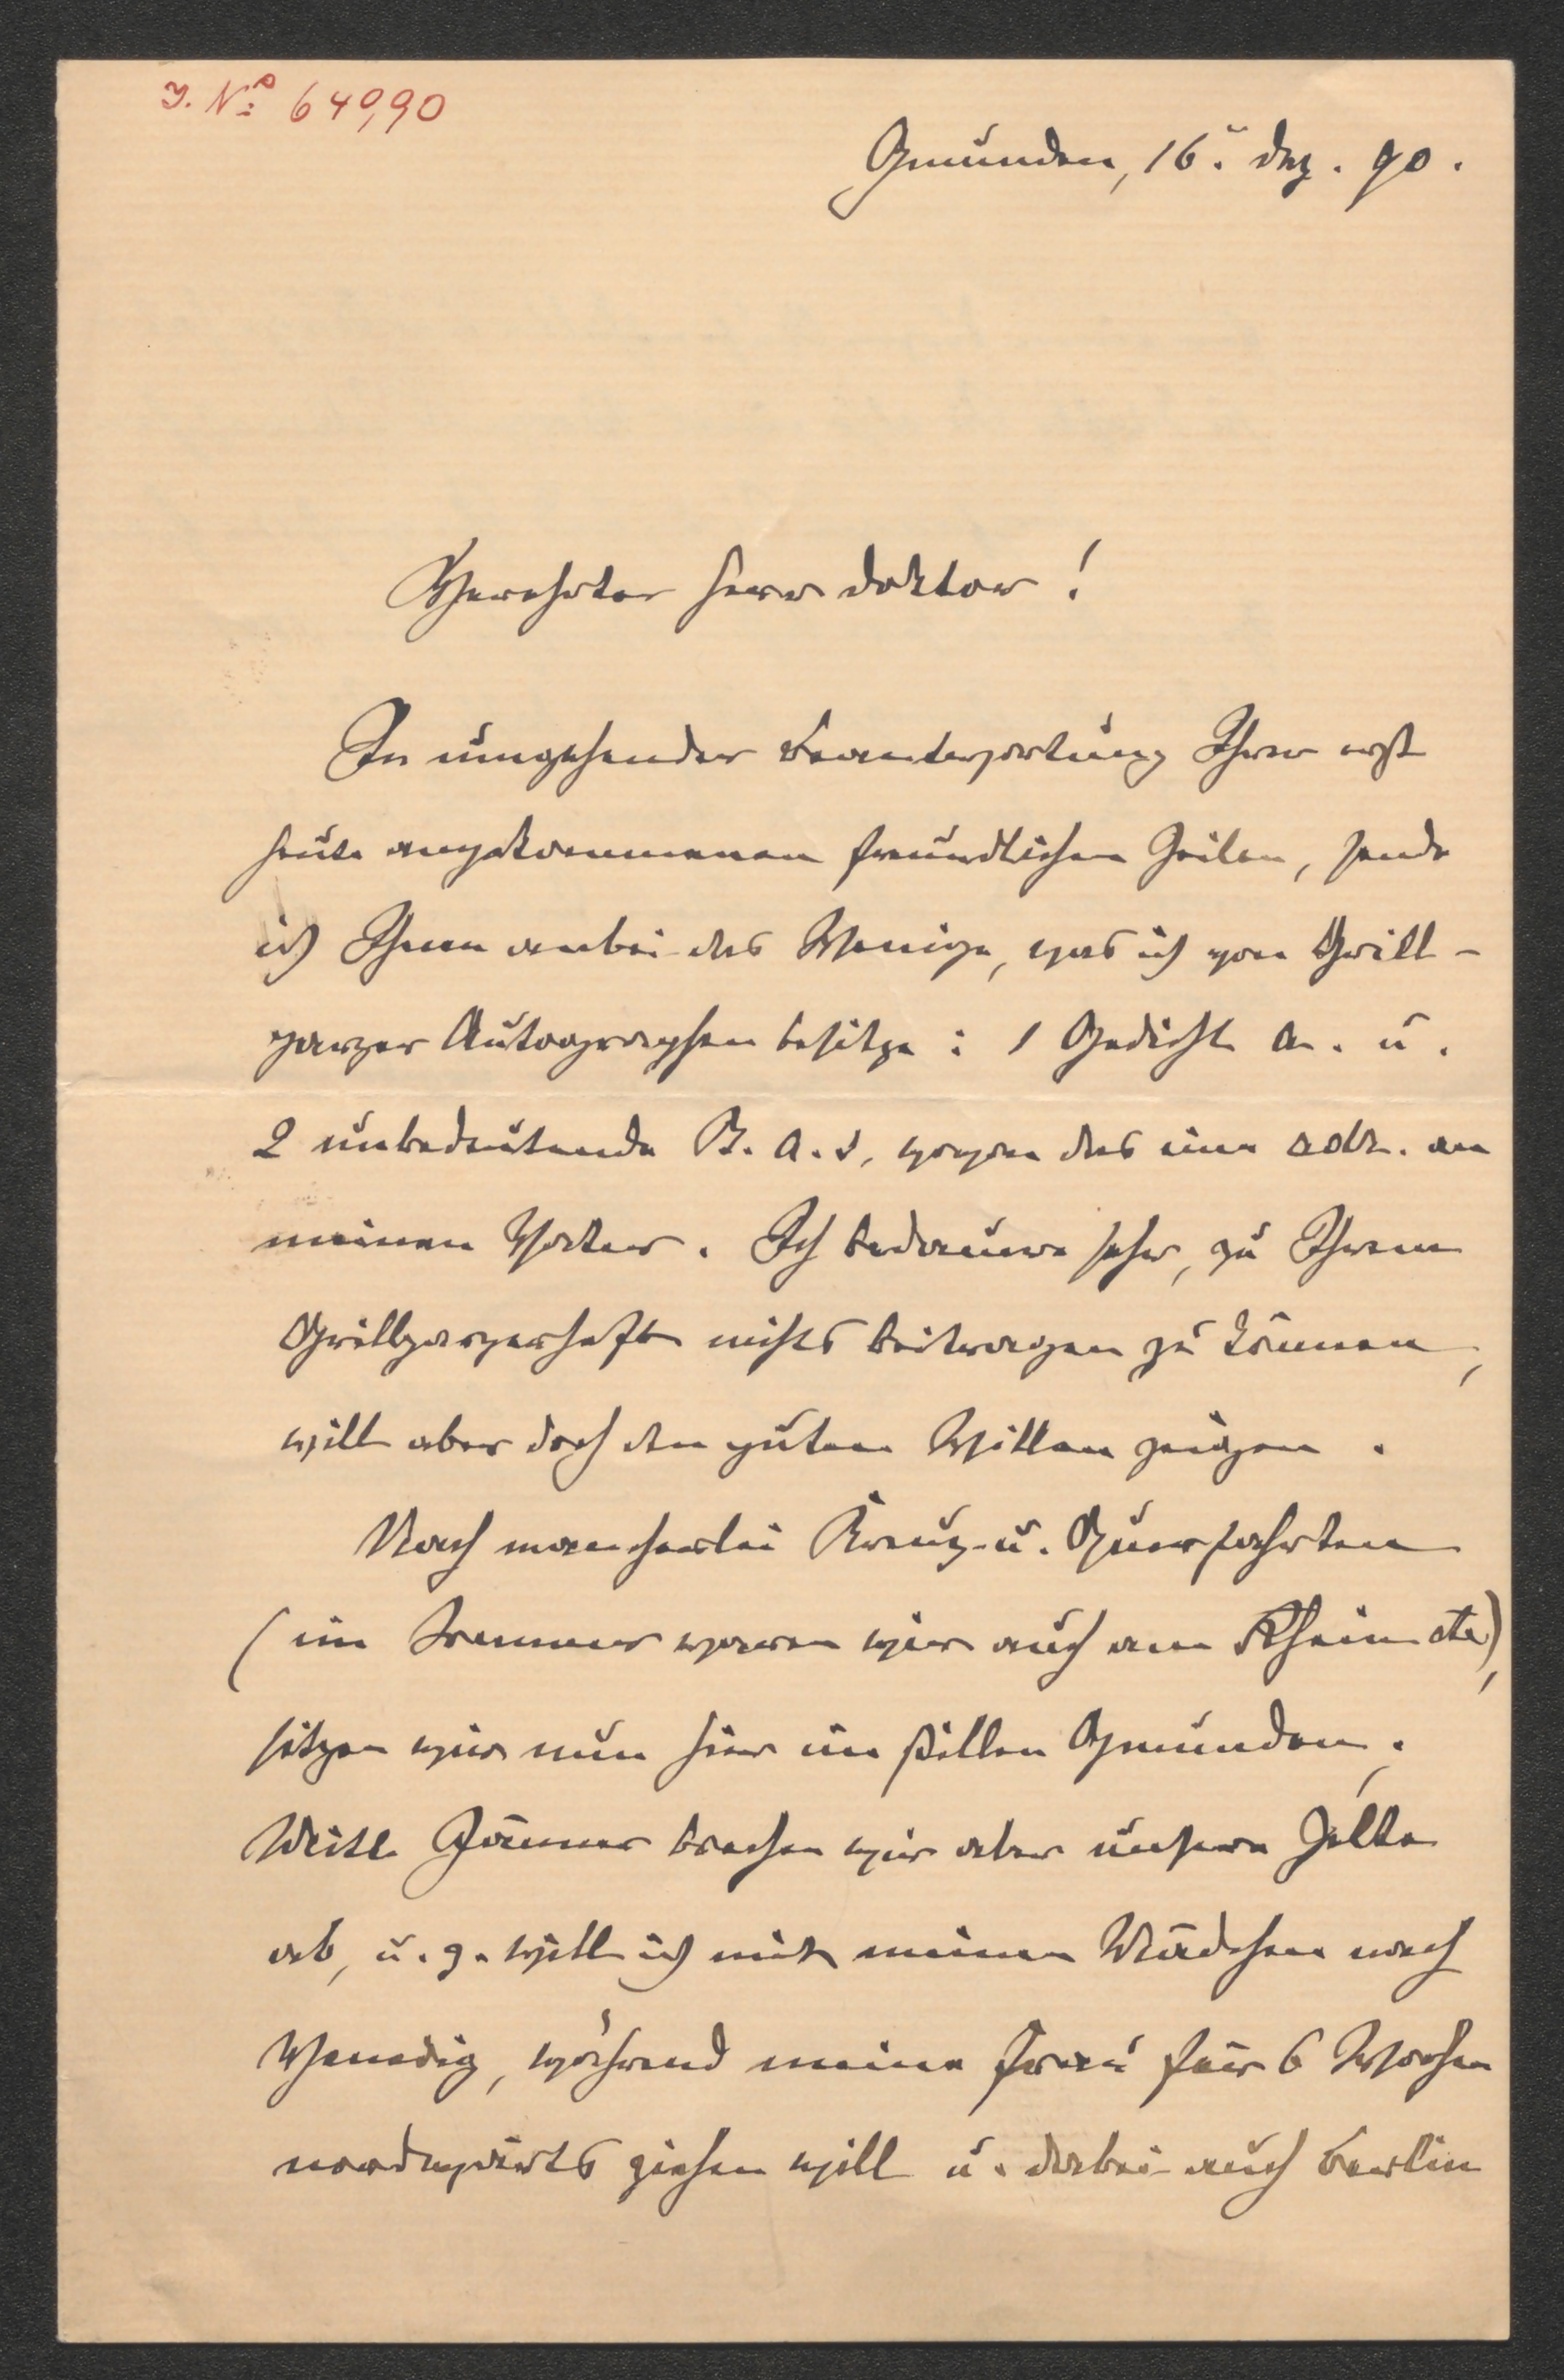 J. No 640,90
Gmunden, 16. Dez. 90.
Verehrter Herr Doktor!
In umgehender Beantwortung Ihrer erst
heute angekommenen freundlichen Zeilen, sende
ich Ihnen anbei das Wenige, was ich von Grill-
parzer Autographen besitze: 1 Gedicht a. u.
2 unbedeutende B. a. s, wovon das eine adr. an
meinen Vater. Ich bedauere sehr, zu Ihrem
Grillparzerhefte nichts beitragen zu können,
will aber doch den guten Willen zeigen.
Nach mancherlei Kreuz- u. Querfahrten
(im Sommer waren wir auch am Rhein etc),
sitzen wir nun hier im stillen Gmunden.
Mitte Jänner brechen wir aber unsere Zelte
ab, u. z. will ich mit meinen Mädchen nach
Venedig, während meine Frau für 6 Wochen
nordwärts ziehen will u. dabei auch Berlin